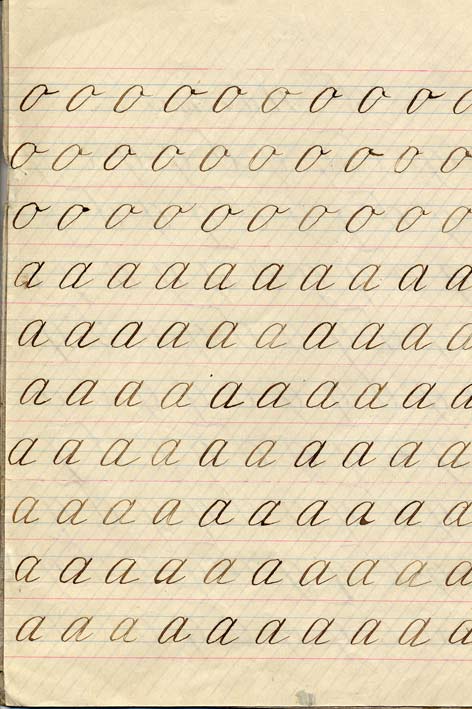 o o o o o o o o o o
o o o o o o o o o o
o o o o o o o o o o
a a a a a a a a a a
a a a a a a a a a a
a a a a a a a a a a
a a a a a a a a a a
a a a a a a a a a a
a a a a a a a a a a
a a a a a a a a a a